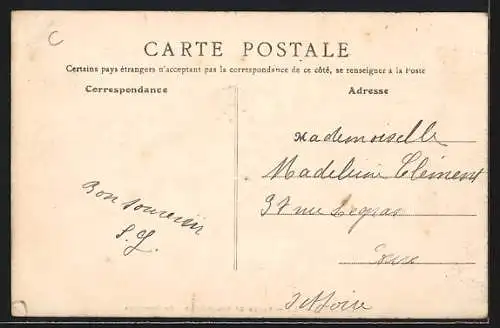 C
CARTE POSTALE
Certains pays étrangers n'acceptant pas la correspondance de ce côté, se renseigner à la Poste
Correspondance
Adresse
Mademoiselle
Madeleine Clément
37 rue Legras
Bon souvenir
S. J.